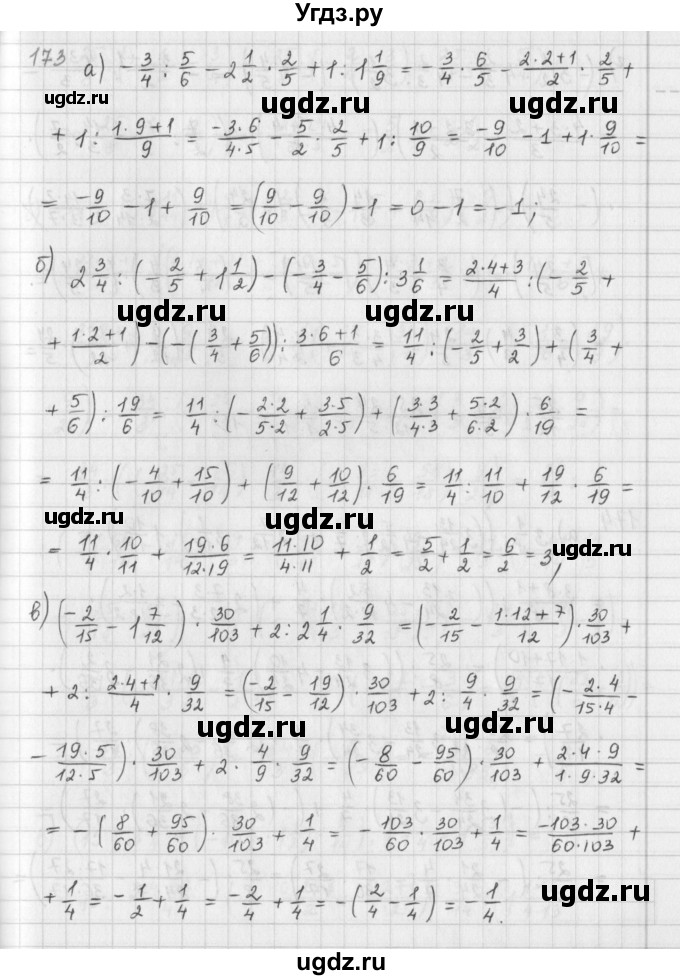 Угдз.ру
173 а) -3/4 : 5/6 - 2 1/2 · 2/5 + 1 : 1 1/9 = -3/4 · 6/5 - (2·2+1)/2 · 2/5 +
ugdz.ru ugdz.ru ugdz.ru
+ 1 : (1·9+1)/9 = (-3·6)/(4·5) - 5/2 · 2/5 + 1 : 10/9 = -9/10 - 1 + 1 · 9/10 =
= -9/10 - 1 + 9/10 = (9/10 - 9/10) - 1 = 0 - 1 = -1;
ugdz.ru
б) 2 3/4 : (-2/5 + 1 1/2) - (-3/4 - 5/6) : 3 1/6 = (2·4+3)/4 : (-2/5 +
ugdz.ru ugdz.ru
+ (1·2+1)/2) - (-(3/4 + 5/6)) : (3·6+1)/6 = 11/4 : (-2/5 + 3/2) + (3/4 +
+ 5/6) : 19/6 = 11/4 : (-(2·2)/(5·2) + (3·5)/(2·5)) + ((3·3)/(4·3) + (5·2)/(6·2)) · 6/19 =
ugdz.ru
= 11/4 : (-4/10 + 15/10) + (9/12 + 10/12) · 6/19 = 11/4 : 11/10 + 19/12 · 6/19 =
ugdz.ru ugdz.ru
= 11/4 · 10/11 + (19·6)/(12·19) = (11·10)/(4·11) + 1/2 = 5/2 + 1/2 = 6/2 = 3;
ugdz.ru
в) (-2/15 - 1 7/12) · 30/103 + 2 : 2 1/4 · 9/32 = (-2/15 - (1·12+7)/12) · 30/103 +
+ 2 : (2·4+1)/4 · 9/32 = (-2/15 - 19/12) · 30/103 + 2 : 9/4 · 9/32 = (-(2·4)/(15·4) -
ugdz.ru ugdz.ru
- (19·5)/(12·5)) · 30/103 + 2 · 4/9 · 9/32 = (-8/60 - 95/60) · 30/103 + (2·4·9)/(1·9·32) =
ugdz.ru
= -(8/60 + 95/60) · 30/103 + 1/4 = -103/60 · 30/103 + 1/4 = (-103·30)/(60·103) +
ugdz.ru ugdz.ru
+ 1/4 = -1/2 + 1/4 = -2/4 + 1/4 = -(2/4 - 1/4) = -1/4.
ugdz.ru